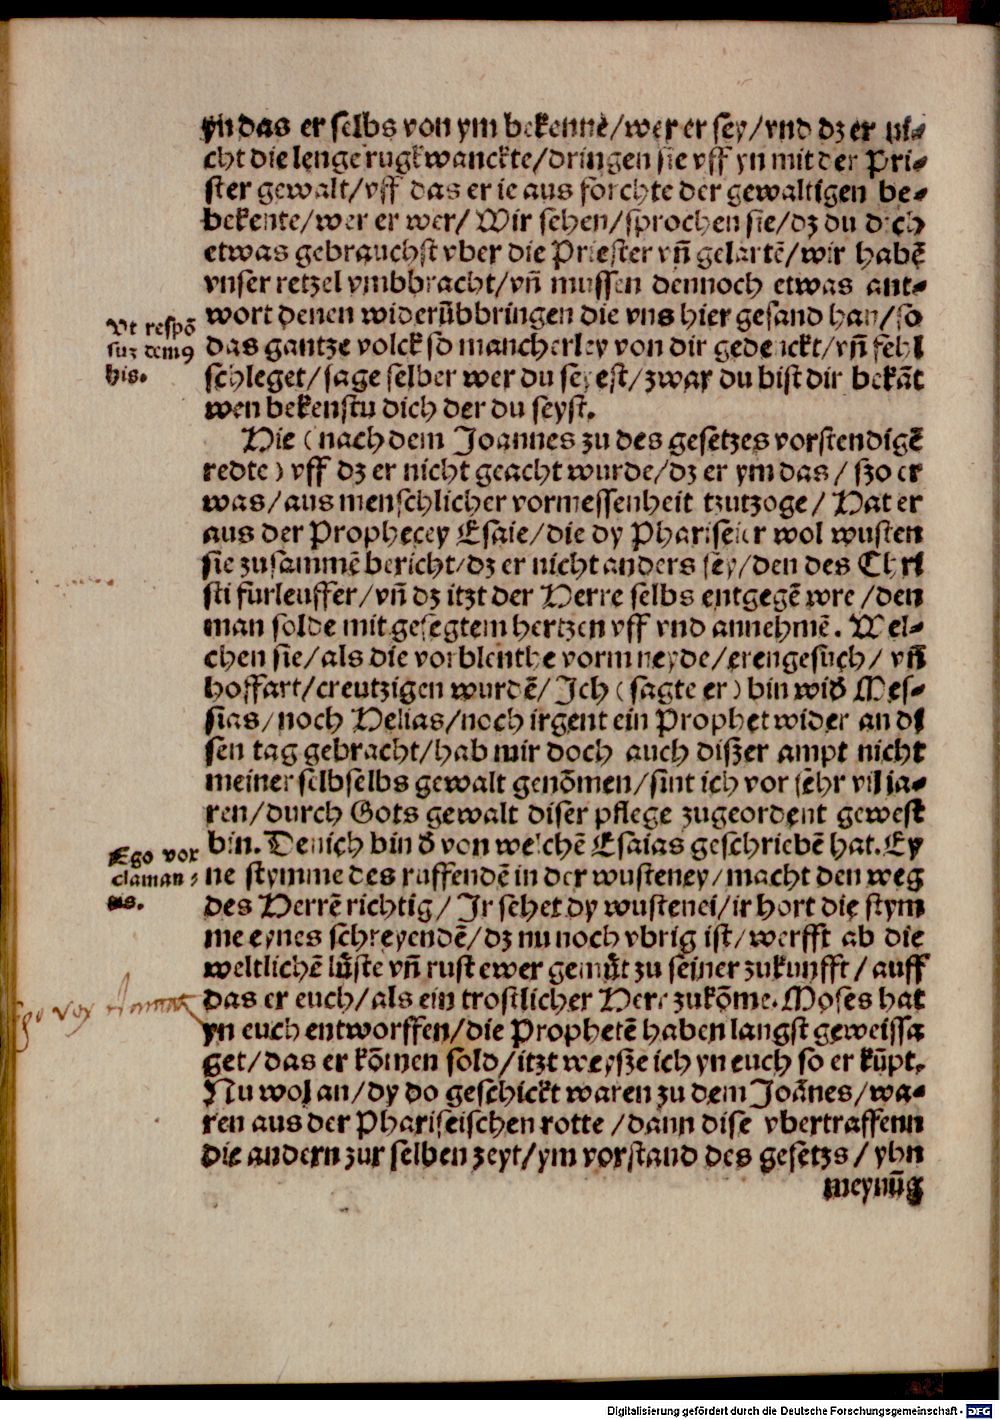 yn das er selbs von ym bekenne/wer er sey/vnd dz er ni-
cht die lenge rugkwanckte/dringen sie vff yn mit der Pri-
ster gewalt/vff das er ie aus forchte der gewaltigen be-
bekente/wer er wer/ Wir sehen/sprochen sie/dz du dich
etwas gebrauchst vber die Priester vñ gelartē/wir habē
vnser retzel vmbbracht/vñ mussen dennoch etwas ant-
Vt respō
suz demꝰ
his.
wort denen widerūbbringen die vns hier gesand han/so
das gantze volck so mancherley von dir gedenckt/vñ fehl
schleget/sage selber wer du seyest/zwar du bist dir bekāt
wen bekenstu dich der du seyst.
Hie (nach dem Joannes zu des gesetzes vorstendigē
redte) vff dz er nicht geacht wurde/dz er ym das/ szo er
was/aus menschlicher vormessenheit tzutzoge/ Hat er
aus der Prophecey Esaie/die dy Phariseier wol wusten
sie zusammē bericht/dz er nicht anders sey/den des Chri
sti furleuffer/vñ dz itzt der Herre selbs entgegē wre/den
man solde mit gesegtem hertzen vff vnd annehmē. Wel-
chen sie/als die vorblenthe vorm neyde/erengesuch/ vñ
hoffart/creutzigen wurdē/Ich (sagte er) bin wid̄ Mes-
sias/noch Helias/noch irgent ein Prophet wider an di
sen tag gebracht/hab mir doch auch diszer ampt nicht
meiner selbselbs gewalt genōmen/sint ich vor sehr vil ja-
ren/durch Gots gewalt diser pflege zugeordent gewest
Ego vox
claman-
tis.
bin. Den ich bin d̄ von welchē Esaias geschriebē hat. Ey
ne stymme des ruffendē in der wusteney/macht den weg
des Herrē richtig/ Ir sehet dy wustenei/ir hort die stym
me eynes schreyendē/dz nu noch vbrig ist/werfft ab die
weltlichē lůste vñ rust ewer gemůt zu seiner zukunfft/auff
Ego vox clamat
das er euch/als ein trostlicher Here zukōme. Moses hat
yn euch entworffen/die Prophetē haben langst geweissa
get/das er kōmen sold/itzt weysze ich yn euch so er kūpt.
Nu wol an/dy do geschickt waren zu dem Joānes/wa-
ren aus der Phariseischen rotte/dann dise vbertraffenn
die andern zur selben zeyt/ym vorstand des gesetzs/ yhn
meynūg
Digitalisierung gefördert durch die Deutsche Forschungsgemeinschaft - DFG